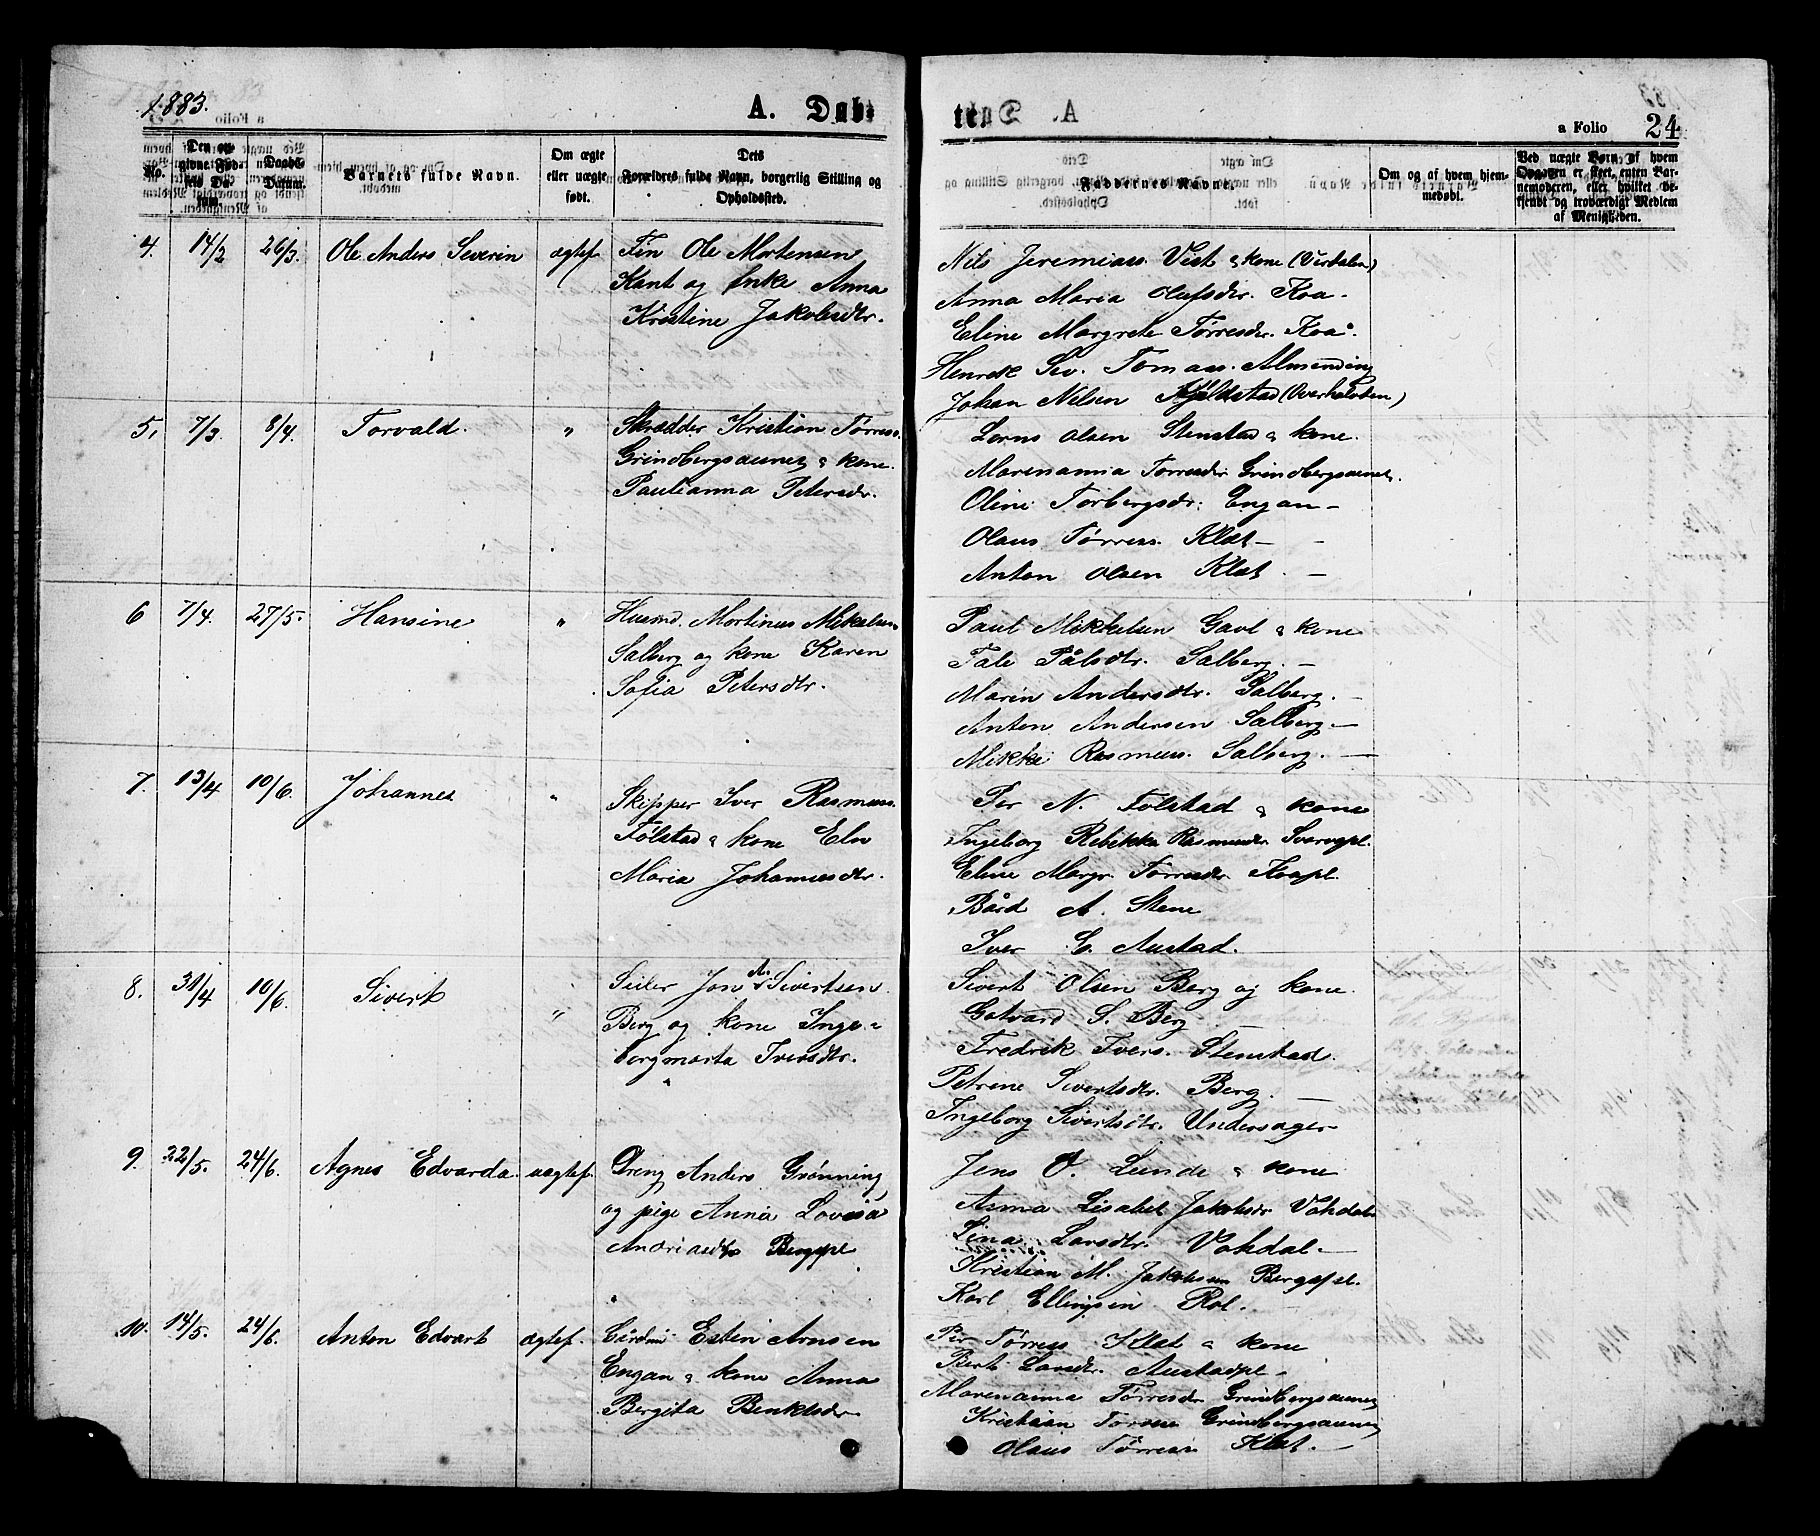 1883.
A. Døbte
a Folio 24
No.
Den opgivne Fødsels Datum.
Daabs-Datum.
Barnets fulde Navn.
Om ægte eller uægte født.
Dets Forældres fulde Navn, borgerlig Stilling og Opholdssted.
Faddernes Navne.
Om og af hvem hjemmedøbt.
Ved uægte Børn af hvem Opgaven er skeet, enten Barnemoderen, eller hvilket bekjendt og troværdigt Medlem af Menigheden.
4. 14/2 26/3. Ole Anders Severin ægtef.
Fin Ole Mortensen
Kant og Enke Anna
Kristine Jakobsdtr.
Nils Jeremiass. Vist & kone (Verdalen)
Anna Maria Olufsdtr. Koa.
Eline Margrete Tørresdr. Koa.
Henrik Sev. Tomass. Almending
Johan Nilsen (Overhalden)
5. 7/3. 8/4. Torvald. "
Skrædder Kristian Tørress.
Grindbergsaunet & kone
Paulianna Petersdr.
Lorns Olsen Stenstad & kone.
Marenanna Torresdr. Grindbergsaunet.
Oline Torbergsdr. Engan –
Olaus Tørress. Klæt – –
Anton Olsen Klæt. –
6 7/4. 27/5. Hansine "
Husmd. Mortinus Mikalsen
Salberg og kone Karen
Sofia Petersdtr.
Paul Mikkelsen Gavl & kone
Tale Pålsdtr. Salberg. –
Marin Andersdtr. Salberg. –
Anton Andersen Salberg. –
Mikkel Rasmuss. Salberg. –
7. 13/4 10/6. Johannes "
Skipper Iver Rasmuss.
Følstad & kone Eln
Maria Johannesdtr.
Per N. Følstad & kone
Ingeborg Rebekka Rasmusdr. Svarvapl.
Eline Margr. Tørresdr. Koapl.
Bård A. Stene
Iver L. Austad.
8. 31/4 10/6. Sivert "
Seiler Jon A. Sivertsen
Berg og kone Inge-
borgmarta Iversdtr.
Sivert Olsen Berg og kone.
Gotvard S. Berg –
Fredrik Ivers. Stenstad.
Petrine Sivertsdtr. Berg. –
Ingeborg Sivertsdtr. Undersager
9. 22/5. 24/6. Agnes Edvarda uægtef.
Dreng Anders Grønning
og pige Anna Lovisa
Andreasdtr Bergspl.
Jens O. Lunde & kone
Anna Lisabet Jakobsdr Vohdal
Lina Larsdtr. Vohdal –
Kristian M. Jakobsen Bergspl.
Karl Ellingsen Rol. –
10. 14/5. 24/6. Anton Edvart ægtef.
Gårdm. Esten Arnsen
Engan & kone Anna
Bergita Benktsdr
Per Tørress Klæt & kone
Berit Larsdtr. Austadpl –
Marenanna Tørresdr Grindbergsaunet
Kristian Torress Grindbergsaunet
Olaus Tørress Klæt. –